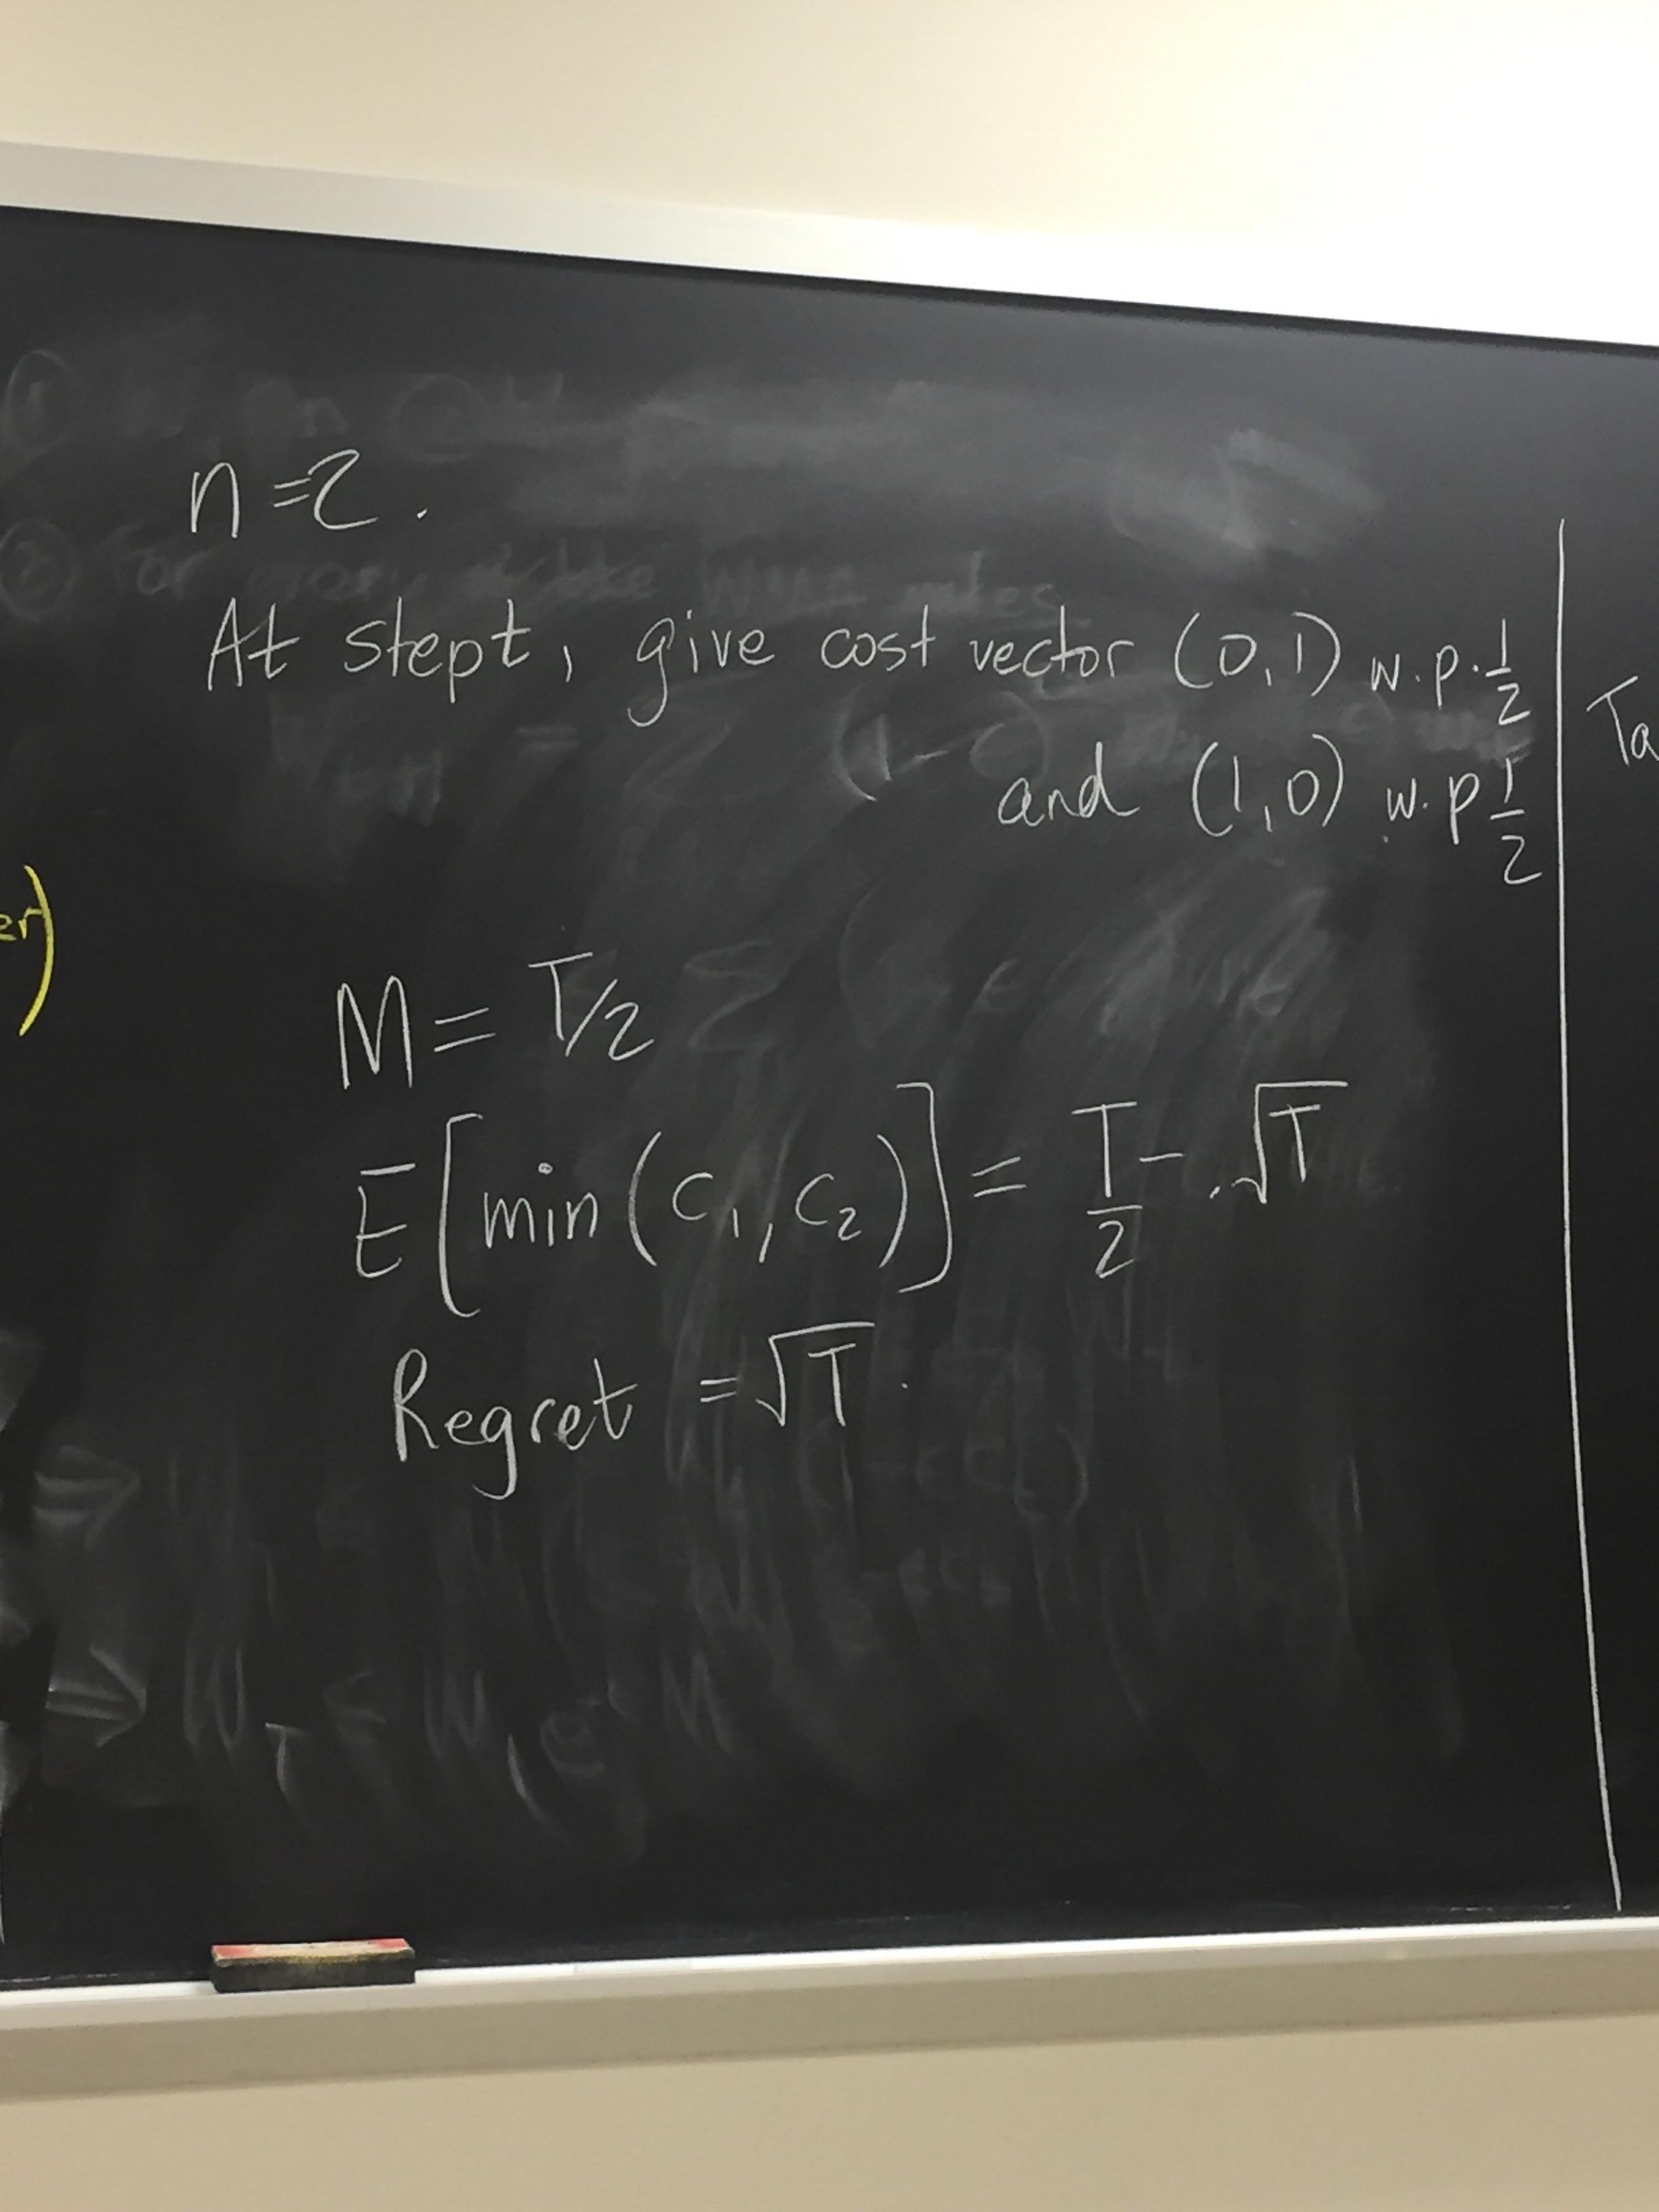 n=2.
At step t, give cost vector (0,1) w.p. 1/2
and (1,0) w.p 1/2
er)
Ta
M = T/2
E[min(c₁, c₂)] = T/2 - √T
Regret = √T.